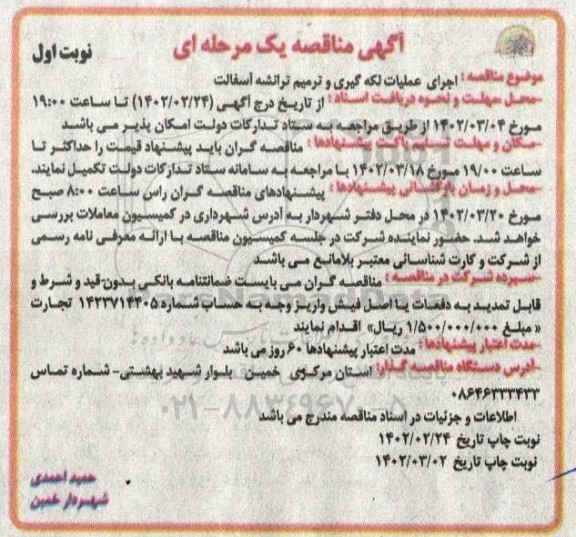 آگهی مناقصه یک مرحله ای
نوبت اول
موضوع مناقصه : اجرای عملیات لکه گیری و ترمیم ترانشه آسفالت
-محل، مهلت و نحوه دریافت اسناد : از تاریخ درج آگهی (۱۴۰۲/۰۲/۲۴) تا ساعت ۱۹:۰۰
مورخ ۱۴۰۲/۰۳/۰۴ از طریق مراجعه به ستاد تدارکات دولت امکان پذیر می باشد
-مکان و مهلت تسلیم پاکت پیشنهادها : مناقصه گران باید پیشنهاد قیمت را حداکثر تا
ساعت ۱۹/۰۰ مورخ ۱۴۰۲/۰۳/۱۸ با مراجعه به سامانه ستاد تدارکات دولت تکمیل نمایند.
-محل و زمان بازگشائی پیشنهادها : پیشنهادهای مناقصه گران راس ساعت ۸:۰۰ صبح
مورخ ۱۴۰۲/۰۳/۲۰ در محل دفتر شهردار به آدرس شهرداری در کمیسیون معاملات بررسی
خواهد شد. حضور نماینده شرکت در جلسه کمیسیون مناقصه با ارائه معرفی نامه رسمی
از شرکت و کارت شناسائی معتبر بلامانع می باشد
-سپرده شرکت در مناقصه : مناقصه گران می بایست ضمانتنامه بانکی بدون قید و شرط و
قابل تمدید به دفعات یا اصل فیش واریز وجه به حساب شماره ۱۴۲۳۷۱۴۴۰۵ تجارت
« مبلغ ۱/۵۰۰/۰۰۰/۰۰۰ ریال» اقدام نمایند
-مدت اعتبار پیشنهادها : مدت اعتبار پیشنهادها ۶۰ روز می باشد
-آدرس دستگاه مناقصه گذار: استان مرکزی خمین بلوار شهید بهشتی- شماره تماس
۰۸۶۴۶۳۳۳۴۳۳
اطلاعات و جزئیات در اسناد مناقصه مندرج می باشد
نوبت چاپ تاریخ ۱۴۰۲/۰۲/۲۴
نوبت چاپ تاریخ ۱۴۰۲/۰۳/۰۲
حمید احمدی
شهردار خمین